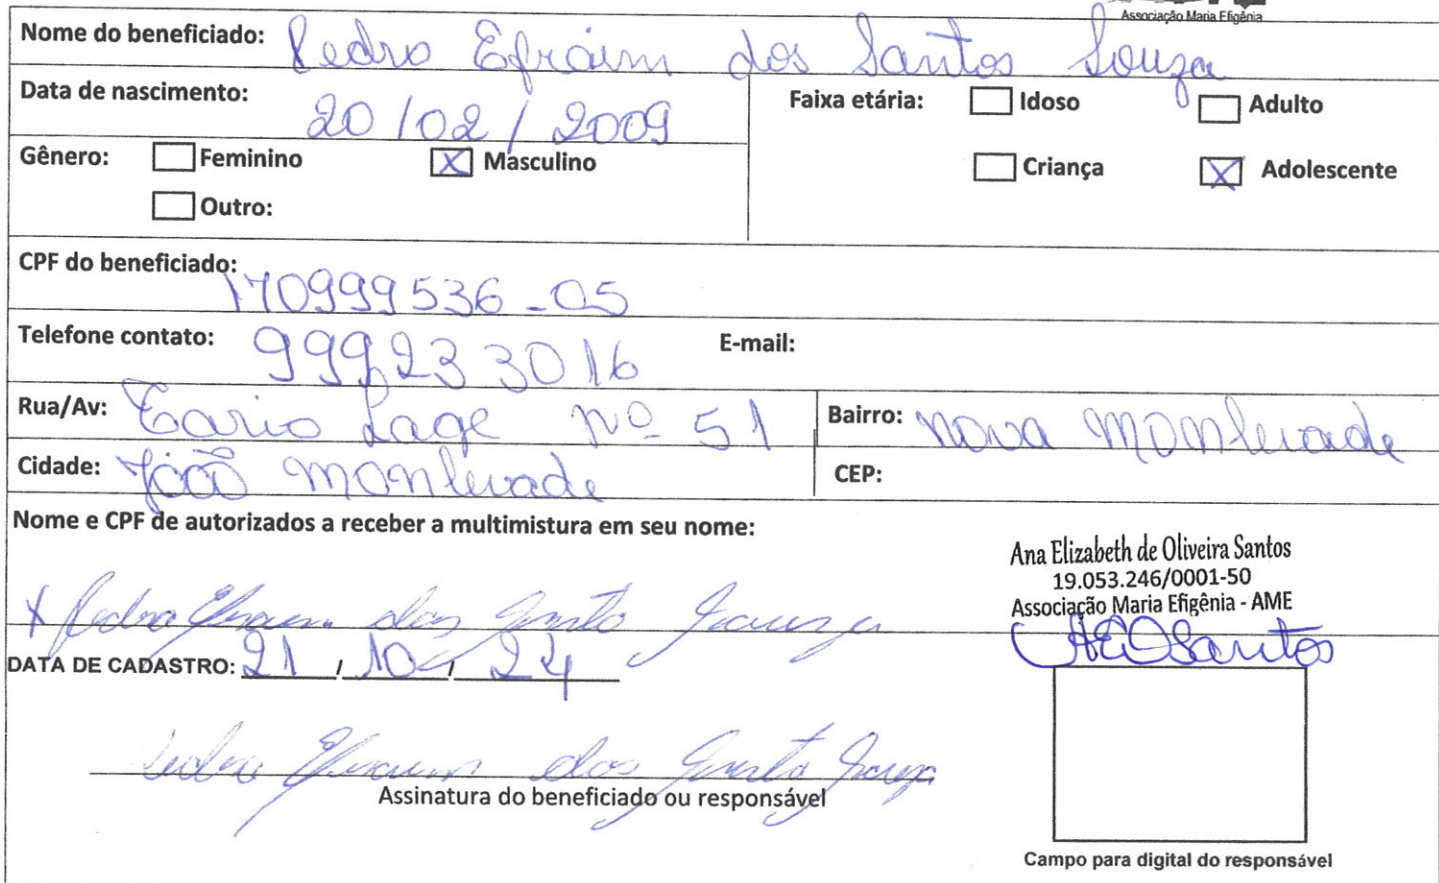 Associação Maria Efigênia
Nome do beneficiado: Pedro Efraim dos Santos Souza
Data de nascimento: 20/02/2009
Faixa etária: Idoso Adulto
Gênero: Feminino X Masculino
Criança X Adolescente
Outro:
CPF do beneficiado: 170999536-05
Telefone contato: 999233016 E-mail:
Rua/Av: Lage nº 51 Bairro: Nova Monlevade
Cidade: João Monlevade CEP:
Nome e CPF de autorizados a receber a multimistura em seu nome:
Ana Elizabeth de Oliveira Santos
19.053.246/0001-50
Associação Maria Efigênia - AME
X Pedro Efraim dos Santo Souza
AEOSantos
DATA DE CADASTRO: 21/10/24
Pedro Efraim dos Santo Souza
Assinatura do beneficiado ou responsável
Campo para digital do responsável